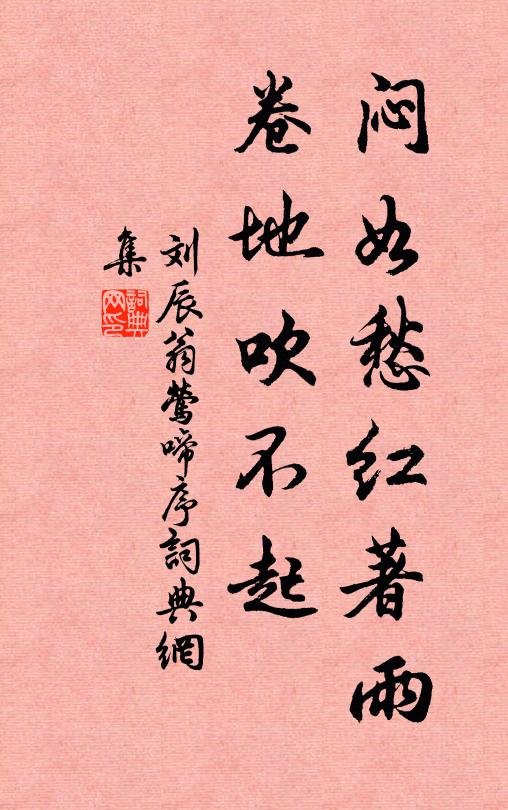 闷如愁红著雨
卷地吹不起
刘辰翁莺啼序詞典網
集
詞典网印